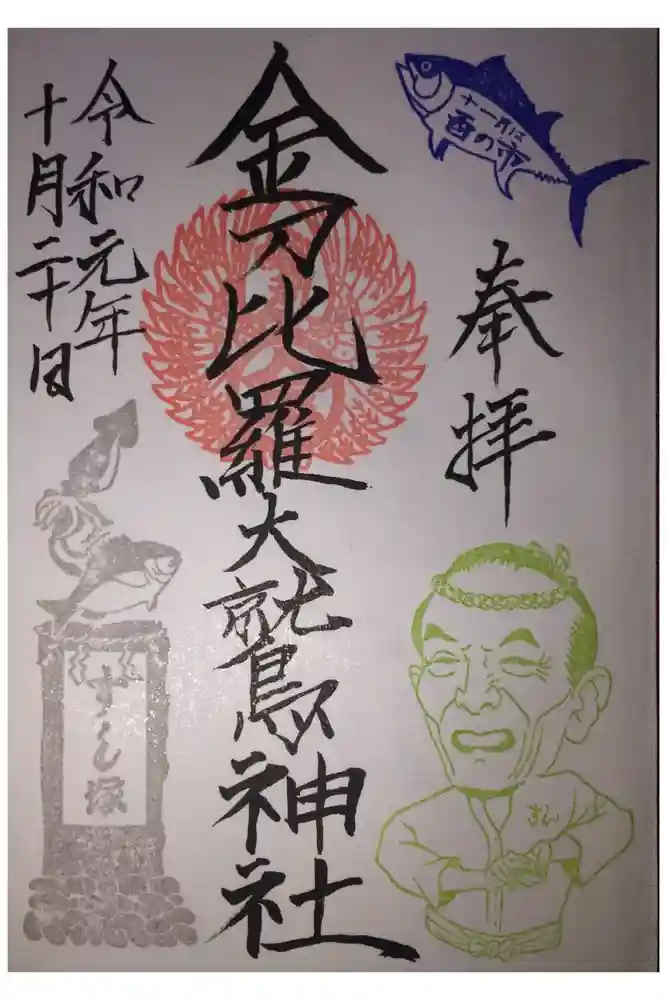 十一月は
酉の市
奉拝
金刀比羅大鷲神社
令和元年
十月二十日
すし塚
すし